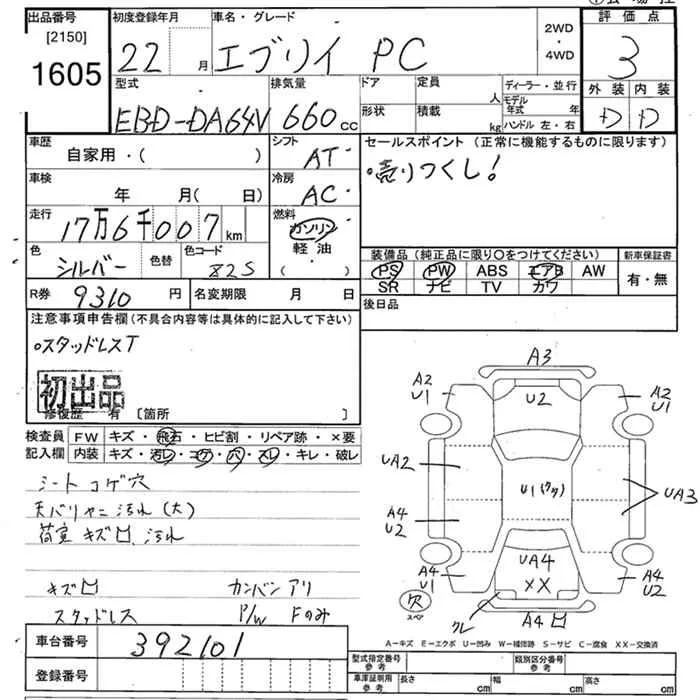 出品番号
[2150]
1605
初度登録年月
22 月
車名・グレード
エブリイ PC
2WD
・
4WD
評価点
3
外装 内装
D D
型式
EBD-DA64V
排気量
660 cc
ドア
形状
定員
人
積載
kg
ディーラー・並行
モデル年式 年
ハンドル 左・右
車歴
自家用・( )
シフト
AT
セールスポイント (正常に機能するものに限ります)
・売りつくし!
車検
年 月( 日)
冷房
AC
走行
17万6千007 km
燃料
ガソリン
軽・油
( )
色
シルバー
色替
色コード
Z2S
装備品 (純正品に限り〇をつけてください)
PS PW ABS エアB AW
SR ナビ TV カワ
新車保証書
有・無
R券
9310 円
名変期限 月 日
後日品
注意事項申告欄 (不具合内容等は具体的に記入して下さい)
○スタッドレスT
初出品
修復歴 有 [箇所 ]
検査員
記入欄
FW キズ・飛石・ヒビ割・リペア跡・×要
内装 キズ・汚レ・コゲ・穴・スレ・キレ・破レ
シート コゲ穴
天バリヤニ汚れ(大)
荷室 キズ凹、汚れ
キズ凹 カンバンアリ
スタッドレス P/W Fのみ
A3
A2
U1
U2
A2
U1
UA2
U1(ワワ)
UA3
A4
U2
UA4
XX
A4
U1
A4
U2
欠
スペア
クレ
A4凹
A-キズ E-エクボ U-凹み W-補修跡 S-サビ C-腐食 XX-交換済
車台番号
392101
登録番号
型式指定番号
参考
類別区分番号
参考
車庫証明用
参考
長さ cm
幅 cm
高さ cm